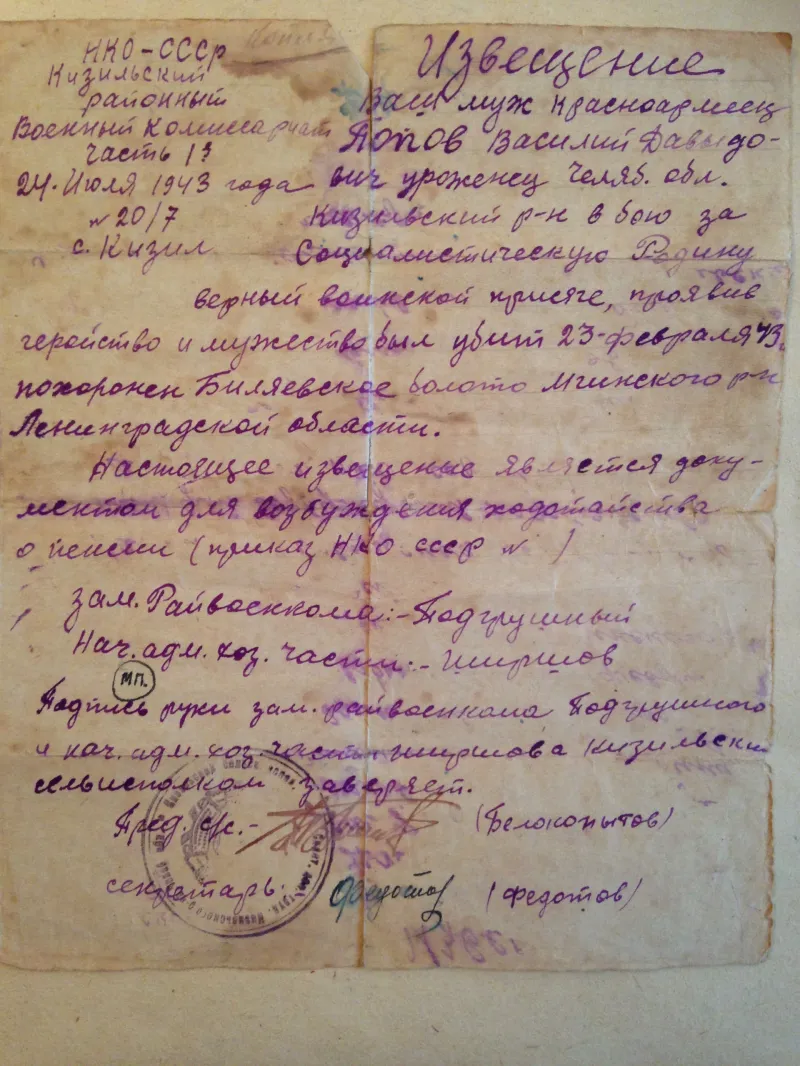 Копия
НКО-СССР
Кизильский
районный
Военный Комиссариат
часть 13
24. Июля 1943 года
N 20/7
с. Кизил
Извещение
Ваш муж красноармеец
Попов Василий Давыдо-
вич уроженец Челяб. обл.
Кизильский р-н в бою за
Социалистическую Родину
верный воинской присяге, проявив
геройство и мужество был убит 23-февраля 43г.
похоронен Биляевское болото Мгинского р-н
Ленинградской области.
Настоящее извещение является доку-
ментом для возбуждения ходотайства
о пенсии (приказ НКО СССР N )
зам. Райвоенкома:- Подгрушный
Нач. адм. хоз. части:- Ширшов
МП.
Подпись руки зам. райвоенкома Подгрушного
и нач. адм. хоз. части Ширшова Кизильский
сельисполком заверяет.
Пред. с/с.- (Белокопытов)
секретарь: Федотов (Федотов)